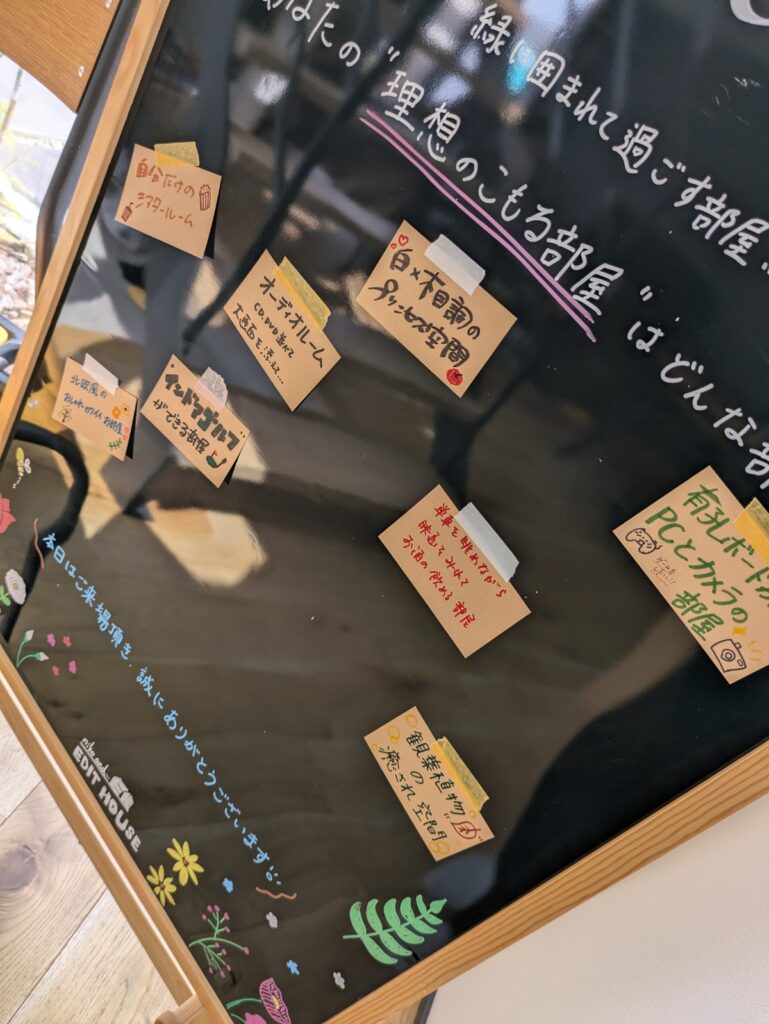 緑に囲まれて過ごす部屋
あなたの"理想のこもる部屋"はどんな部
自分だけの
シアタールーム
オーディオルーム
CD、DVD並べて
大画面を添えて...
白×木目調の
プリンセス空間
北欧風の
お部屋
インドアゴルフ
ができる部屋
単車を眺めながら
映画をみれて
お酒の飲める部屋
有孔ボードが
PCとカメラの
部屋
観葉植物
の
癒され空間
本日はご来場頂き、誠にありがとうございます
EDIT HOUSE